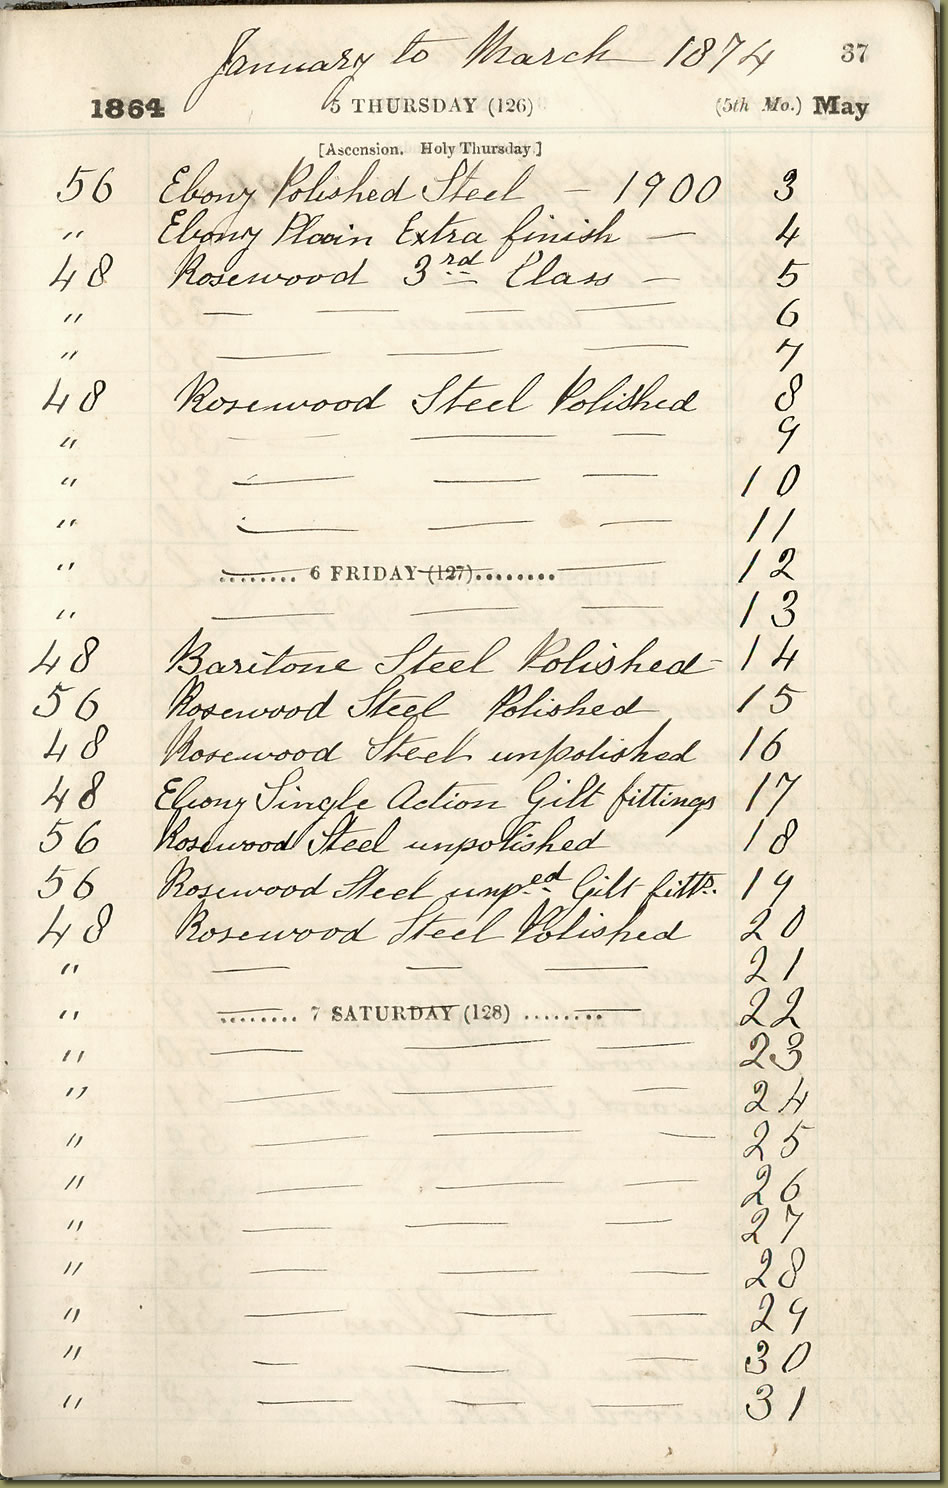 January to March 1874 37
1864 5 THURSDAY (126) (5th Mo.) May
[Ascension. Holy Thursday.]
56 Ebony Polished Steel — 1900 3
〃 Ebony Plain Extra finish — 4
48 Rosewood 3rd Class — 5
〃 — — — — 6
〃 — — — 7
48 Rosewood Steel Polished 8
〃 — — — 9
〃 — — — 10
〃 — — — 11
〃 ........ 6 FRIDAY (127)........ — 12
〃 — — — 13
48 Baritone Steel Polished - 14
56 Rosewood Steel Polished 15
48 Rosewood Steel unpolished 16
48 Ebony Single Action Gilt fittings 17
56 Rosewood Steel unpolished 18
56 Rosewood Steel unp.ed Gilt fitts. 19
48 Rosewood Steel Polished 20
〃 — — — 21
〃 ........ 7 SATURDAY (128) ........ 22
〃 — — — 23
〃 — — — 24
〃 — — — 25
〃 — — — 26
〃 — — — 27
〃 — — — 28
〃 — — — 29
〃 — — — 30
〃 — — — 31